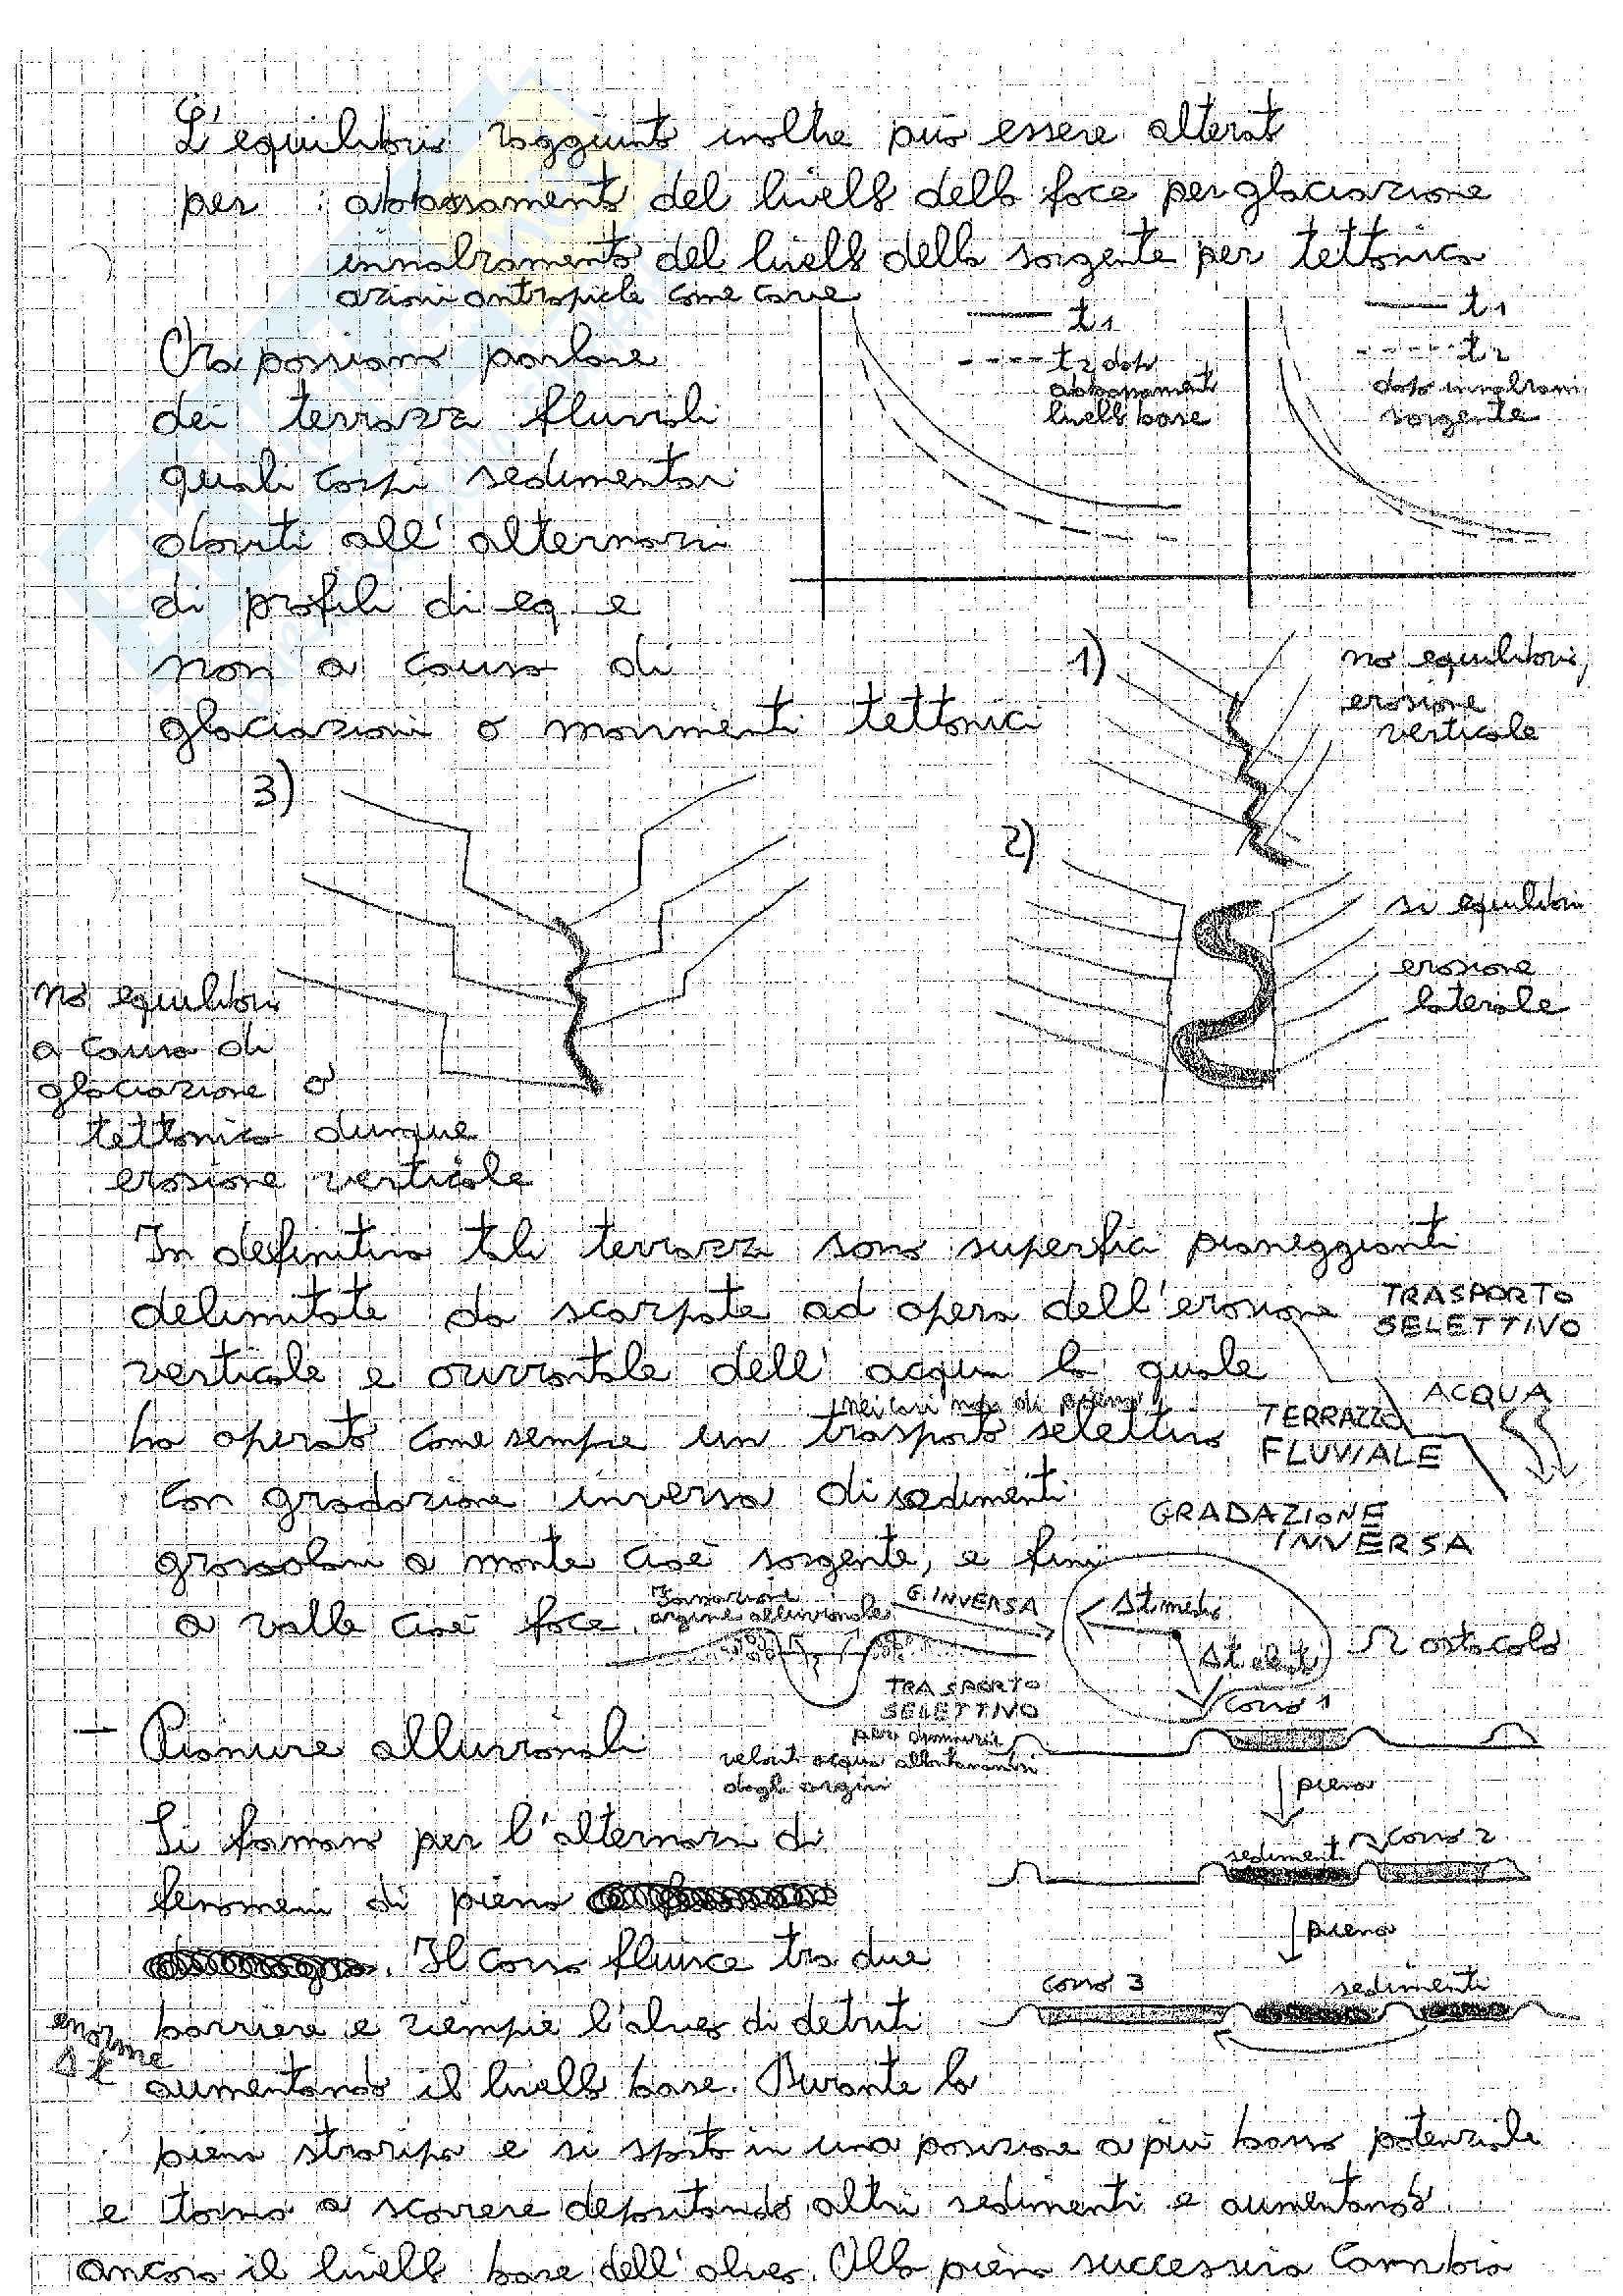 L'equilibrio raggiunto inoltre può essere alterato
per : abbassamento del livello della foce per glaciazione
innalzamento del livello della sorgente per tettonica
azioni antropiche come cave
t1
t2 dopo
abbassamenti
livello base
t1
t2
dopo innalzam.
sorgente
Ora possiamo parlare
dei terrazzi fluviali
quali corpi sedimentari
dovuti all'alternarsi
di profili di eq e
non a causa di
glaciazioni o movimenti tettonici
1)
no equilibrio,
erosione
verticale
2)
si equilibrio
erosione
laterale
3)
no equilibrio
a causa di
glaciazione o
tettonica dunque
erosione verticale
In definitiva tali terrazzi sono superfici pianeggianti
delimitate da scarpate ad opera dell'erosione
verticale e orizzontale dell'acqua la quale
nei casi non di piena
ha operato come sempre un trasporto selettivo
con gradazione inversa di sedimenti
grossolani a monte cioè sorgente, e fini
a valle cioè foce.
TRASPORTO
SELETTIVO
ACQUA
TERRAZZO
FLUVIALE
GRADAZIONE
INVERSA
Formazione
argine alluvionale
G. INVERSA
TRASPORTO
SELETTIVO
per diminuzi
velocità acqua allontanandosi
dagli argini
Δt medio
Δt
ostacolo
corso 1
piena
sedimenti
corso 2
piena
corso 3
sedimenti
- Pianure alluvionali
Si formano per l'alternarsi di
fenomeni di piena
. Il corso fluisce tra due
barriere e riempie l'alveo di detriti
enorme
Δt
aumentando il livello base. Durante la
piena straripa e si sposta in una posizione a più basso potenziale
e torna a scorrere depositando altri sedimenti e aumentando
ancora il livello base dell'alveo. Alla piena successiva cambia